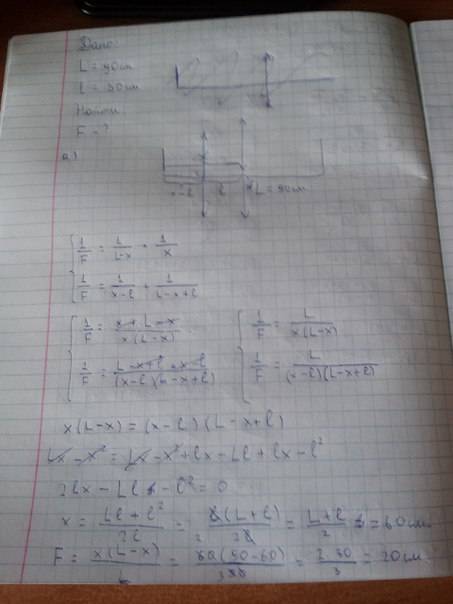 Дано:
L = 90 см
l = 30 см
Найти:
F - ?
а)
x-l l L = 90 см
1/F = 1/(L-x) + 1/x
1/F = 1/(x-l) + 1/(L-x+l)
1/F = (x+L-x)/(x(L-x)) 1/F = L/(x(L-x))
1/F = (L-x+l+x-l)/((x-l)(L-x+l)) 1/F = L/((x-l)(L-x+l))
x(L-x) = (x-l)(L-x+l)
Lx - x² = Lx - x² + lx - Ll + lx - l²
2lx - Ll - l² = 0
x = (Ll+l²)/(2l) = l(L+l)/(2l) = (L+l)/2 = 60 см
F = x(L-x)/L = 60(90-60)/90 = 2·30/3 = 20 см